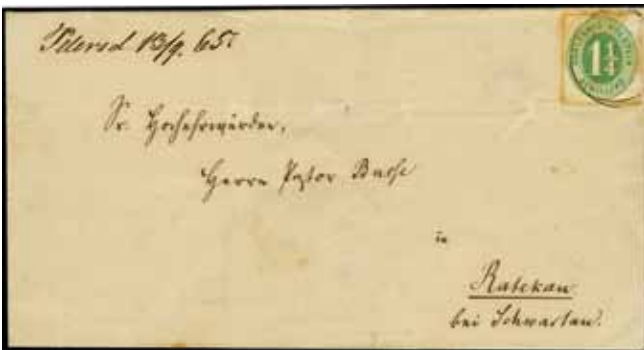 Petersd 13/9. 65.
1¼
Sr. Hochehrwürden,
Herrn Pastor Busse
in
Ratekau
bei Schwartau.